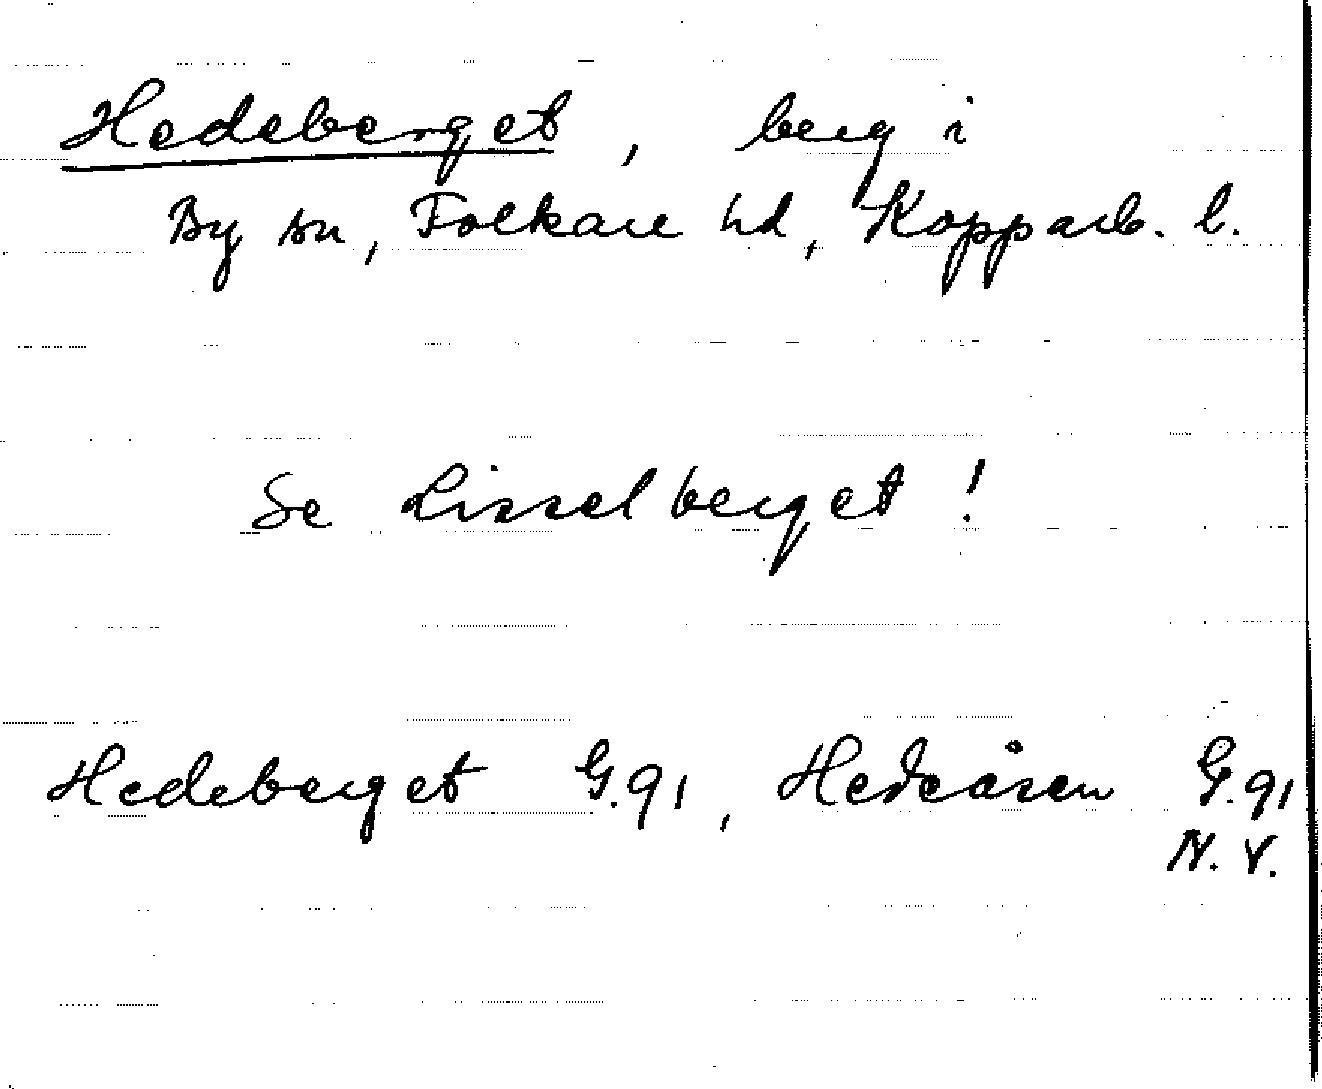 Hedeberget, berg i
By sn, Folkare hd, Kopparb. l.
Se Lisselberget!
Hedeberget G.91, Hedeåsen G.91
N.V.